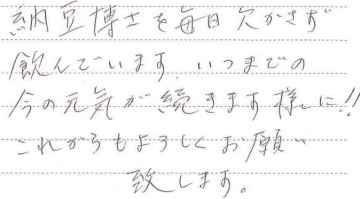 納豆博士を毎日欠かさず
飲んでいます、いつまでの
今の元気が続きます様に!!
これからもよろしくお願い
致します。